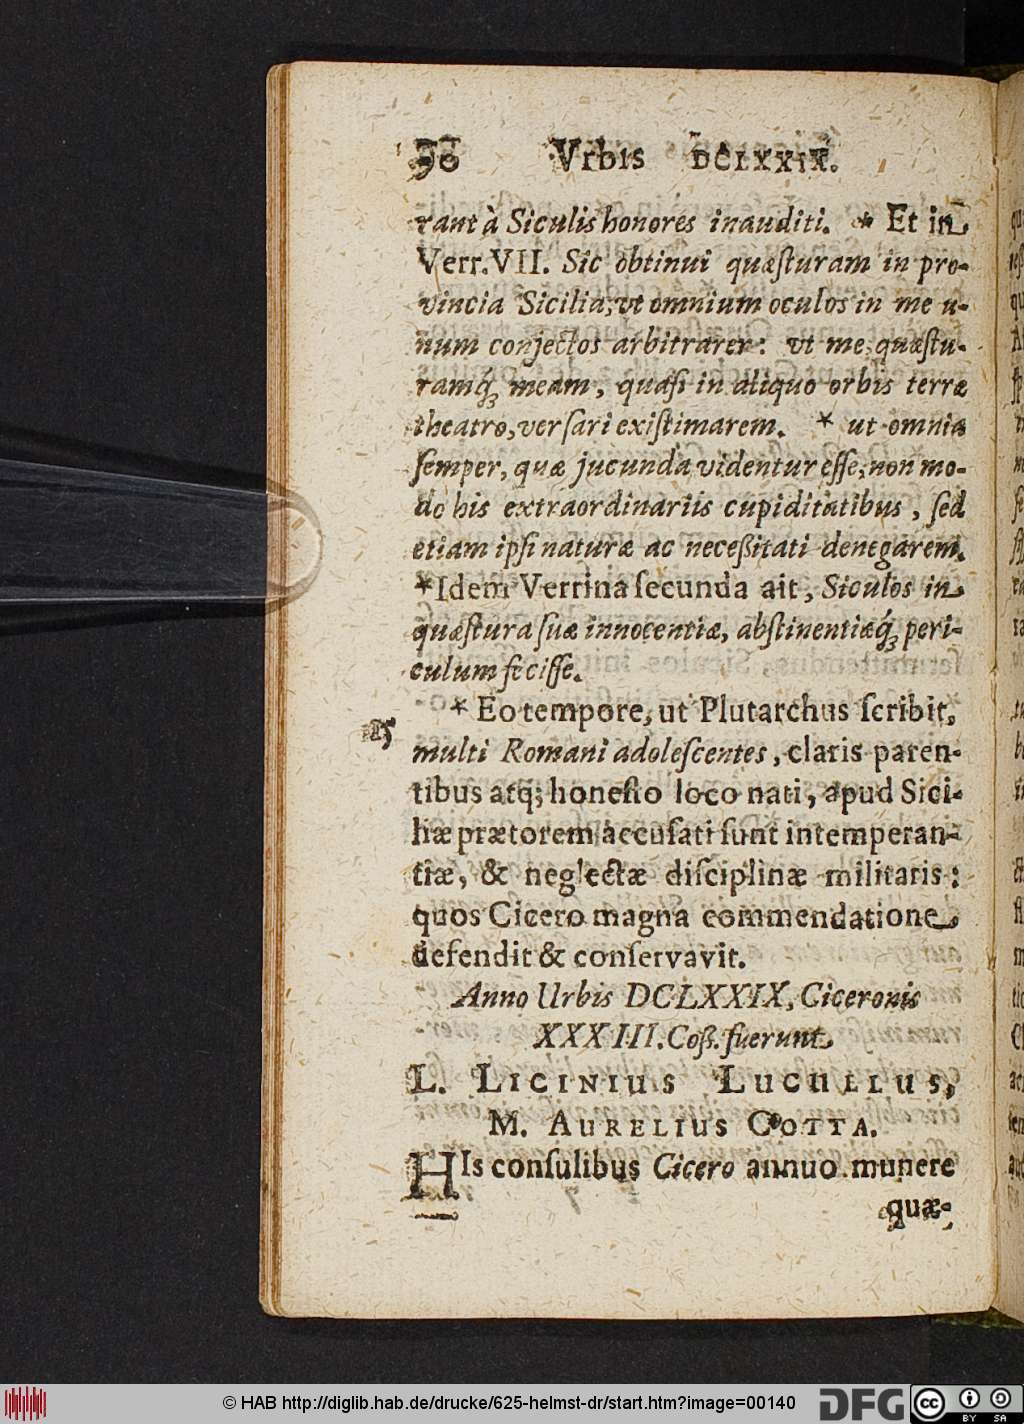 90 Vrbis DCLXXIX.
rant à Siculis honores inauditi. * Et in
Verr. VII. Sic obtinui quæſturam in pro-
vincia Sicilia, vt omnium oculos in me u-
num conjectos arbitrarer: vt me, quæſtu-
ramq́; meam, quaſi in aliquo orbis terræ
theatro, verſari exiſtimarem. * ut omnia
ſemper, quæ jucunda videntur eſſe, non mo-
do his extraordinariis cupiditatibus, ſed
etiam ipſi naturæ ac neceßitati denegarem.
*Idem Verrina ſecunda ait, Siculos in
quæſtura ſuæ innocentiæ, abſtinentiæq́; peri-
culum feciſſe.
* Eo tempore, ut Plutarchus ſcribit,
multi Romani adoleſcentes, claris paren-
tibus atq; honeſto loco nati, apud Sici-
liæ prætorem accuſati ſunt intemperan-
tiæ, & neglectæ diſciplinæ militaris:
quos Cicero magna commendatione
defendit & conſervavit.
Anno Urbis DCLXXIX, Ciceronis
XXXIII. Coß. fuerunt
L. LICINIUS LUCULLUS,
M. AURELIUS COTTA.
HIs conſulibus Cicero annuo munere
quæ-
© HAB http://diglib.hab.de/drucke/625-helmst-dr/start.htm?image=00140
DFG
cc
BY SA